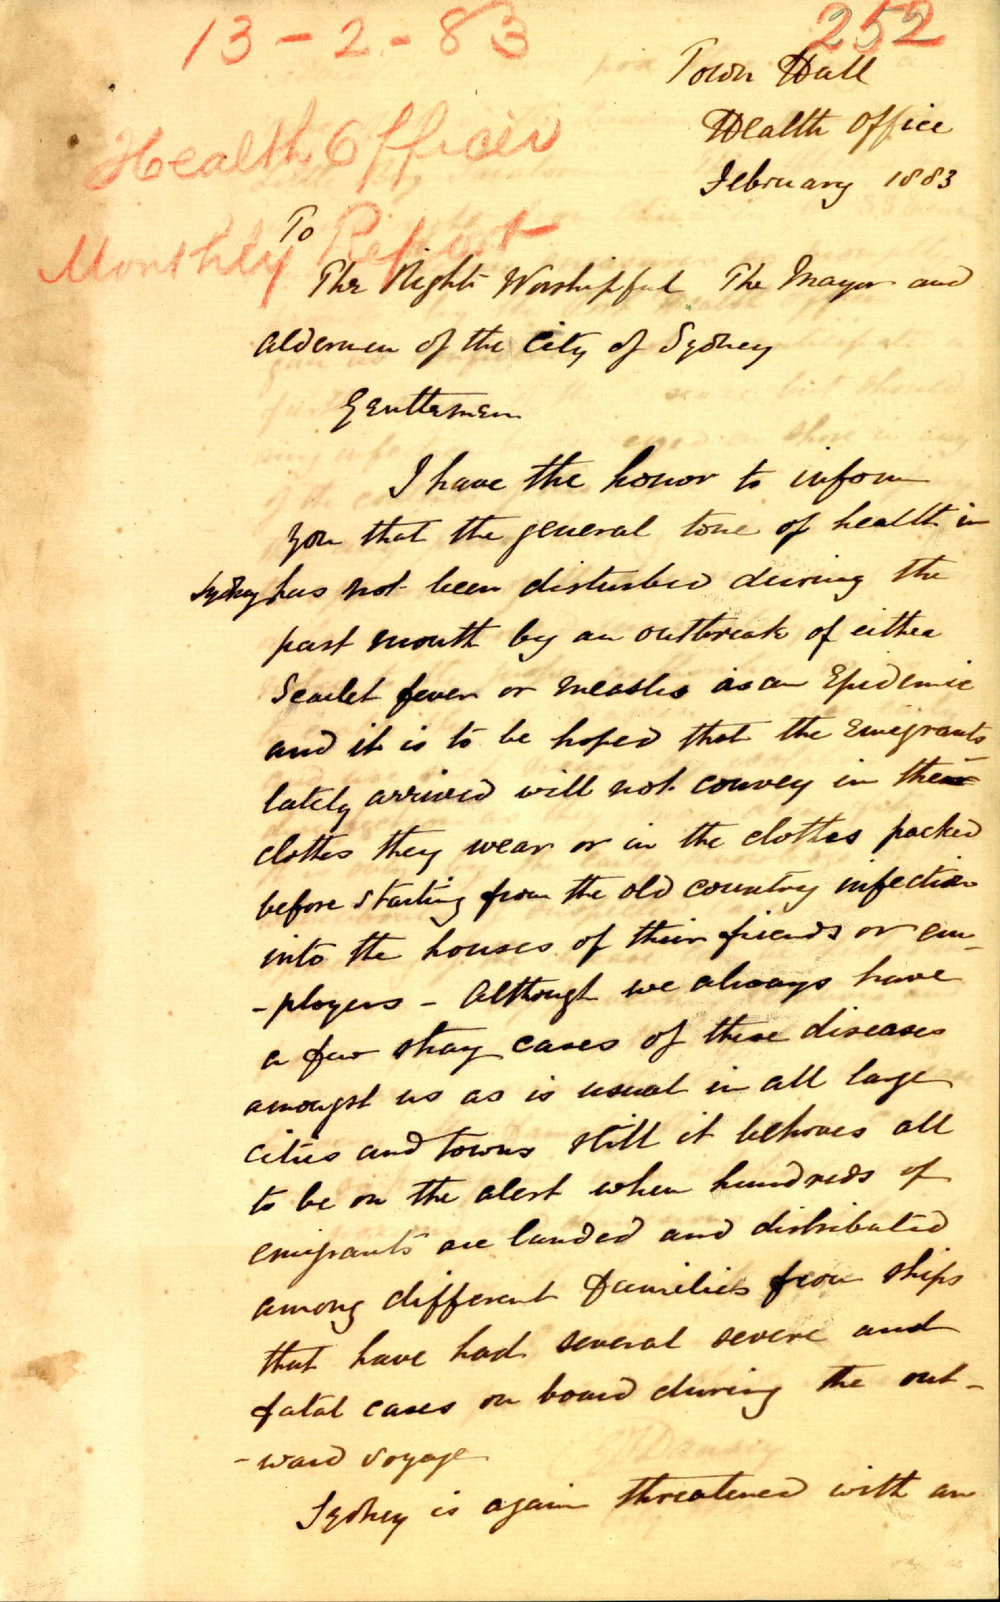 13-2-83
252
Town Hall
Health Office
February 1883
Health Officer
Monthly Report
To
The Right Worshipful The Mayor and
Aldermen of the City of Sydney
Gentlemen
I have the honor to inform
you that the general tone of health in
Sydney has not been disturbed during the
past month by an outbreak of either
Scarlet fever or Measles as an Epidemic
and it is to be hoped that the Emigrants
lately arrived will not convey in the
clothes they wear or in the clothes packed
before starting from the old country infection
into the houses of their friends or em-
-ployers - Although we always have
a few stray cases of these diseases
amongst us as is usual in all large
cities and towns still it behoves all
to be on the alert when hundreds of
emigrants are landed and distributed
among different families from ships
that have had several severe and
fatal cases on board during the out-
-ward voyage
Sydney is again threatened with an